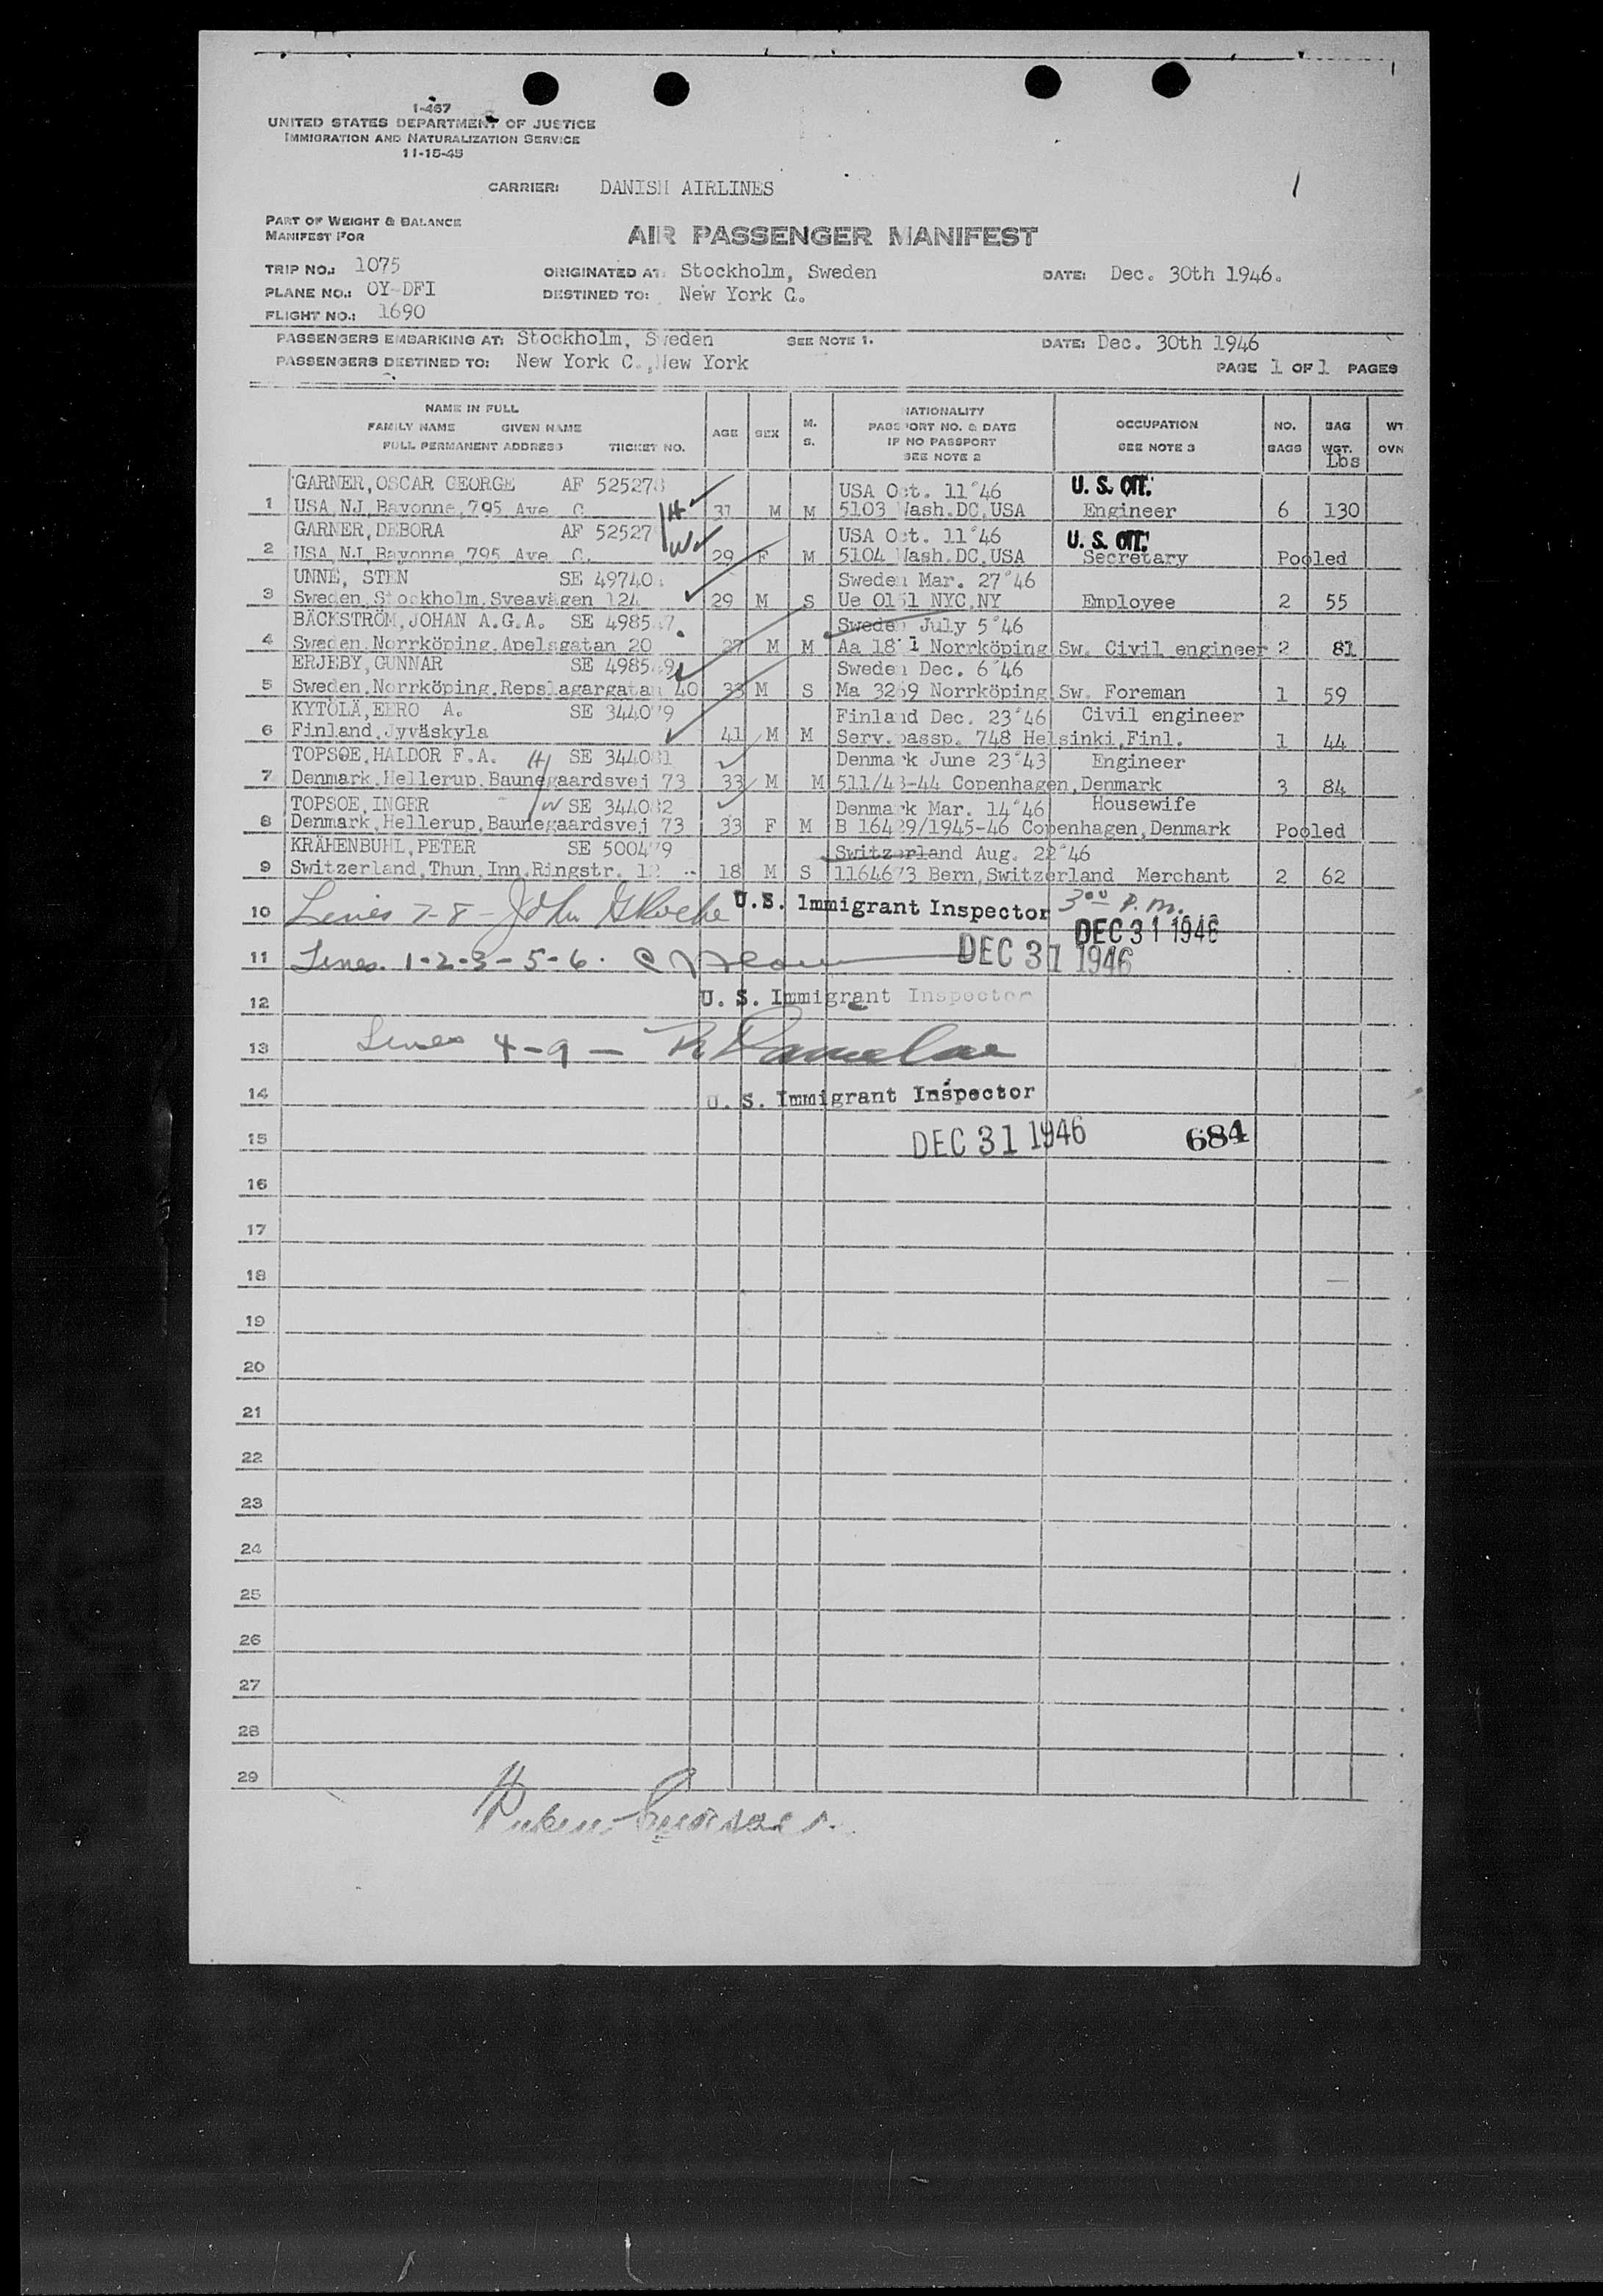 1-467
UNITED STATES DEPARTMENT OF JUSTICE
IMMIGRATION AND NATURALIZATION SERVICE
11-15-45
CARRIER: DANISH AIRLINES
PART OF WEIGHT & BALANCE
MANIFEST FOR
AIR PASSENGER MANIFEST
TRIP NO.: 1075 ORIGINATED AT: Stockholm, Sweden DATE: Dec. 30th 1946.
PLANE NO.: OY-DFI DESTINED TO: New York C.
FLIGHT NO.: 1690
PASSENGERS EMBARKING AT: Stockholm, Sweden SEE NOTE 1. DATE: Dec. 30th 1946
PASSENGERS DESTINED TO: New York C., New York PAGE 1 OF 1 PAGES
NAME IN FULL
FAMILY NAME GIVEN NAME
FULL PERMANENT ADDRESS TICKET NO.
AGE SEX M. S.
NATIONALITY
PASSPORT NO. & DATE
IF NO PASSPORT
SEE NOTE 2
OCCUPATION
SEE NOTE 3
NO. BAGS
BAG WGT. Lbs
WT OVN
GARNER, OSCAR GEORGE AF 525278 USA Oct. 11°46 U. S. CIT.
1 USA, NJ, Bayonne, 795 Ave. C. H 37 M M 5103 Wash. DC, USA Engineer 6 130
GARNER, DEBORA AF 52527 USA Oct. 11°46 U. S. CIT.
2 USA, NJ, Bayonne, 795 Ave. C. W 29 F M 5104 Wash. DC, USA Secretary Pooled
UNNÉ, STEN SE 49740 Sweden Mar. 27°46
3 Sweden, Stockholm, Sveavägen 124 29 M S Ue 0151 NYC, NY Employee 2 55
BÄCKSTRÖM, JOHAN A.G.A. SE 4985 7 Sweden July 5°46
4 Sweden, Norrköping, Apelsgatan 20 27 M M Aa 18 1 Norrköping Sw. Civil engineer 2 81
ERJEBY, GUNNAR SE 4985 9 Sweden Dec. 6°46
5 Sweden, Norrköping, Repslagargatan 40 33 M S Ma 3269 Norrköping Sw. Foreman 1 59
KYTÖLÄ, EERO A. SE 344079 Finland Dec. 23°46 Civil engineer
6 Finland, Jyväskyla 41 M M Serv. passp. 748 Helsinki, Finl. 1 44
TOPSOE, HALDOR F.A. H SE 344081 Denmark June 23°43 Engineer
7 Denmark, Hellerup, Baunegaardsvej 73 33 M M 511/43-44 Copenhagen, Denmark 3 84
TOPSOE, INGER W SE 344082 Denmark Mar. 14°46 Housewife
8 Denmark, Hellerup, Baunegaardsvej 73 33 F M B 16429/1945-46 Copenhagen, Denmark Pooled
KRÄHENBUHL, PETER SE 500479 Switzerland Aug. 22°46
9 Switzerland, Thun, Inn. Ringstr. 12 18 M S 1164673 Bern, Switzerland Merchant 2 62
10 Lines 7-8 - John U.S. Immigrant Inspector 3 00 P.M.
DEC 31 1946
11 Lines 1-2-3-5-6. DEC 31 1946
12 U. S. Immigrant Inspector
13 Lines 4-9 -
14 U. S. Immigrant Inspector
15 DEC 31 1946 684
16
17
18
19
20
21
22
23
24
25
26
27
28
29